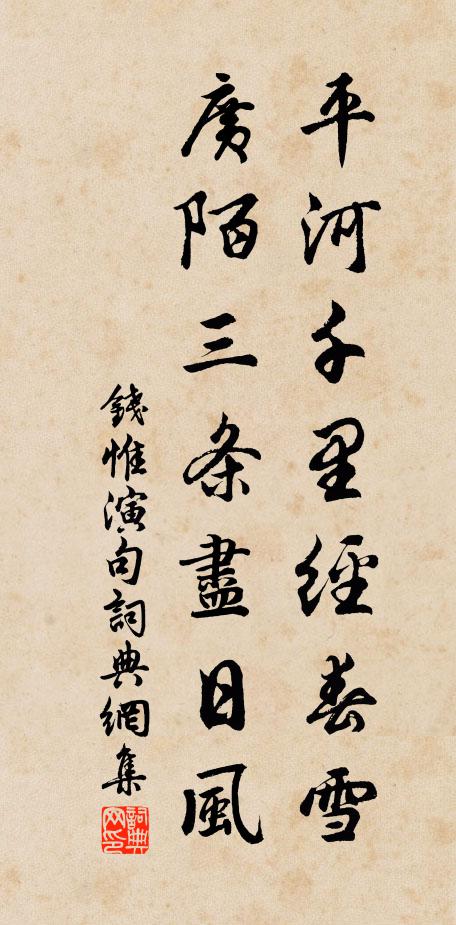 平河千里經春雪
廣陌三条盡日風
錢惟演句詞典網集
詞典网印